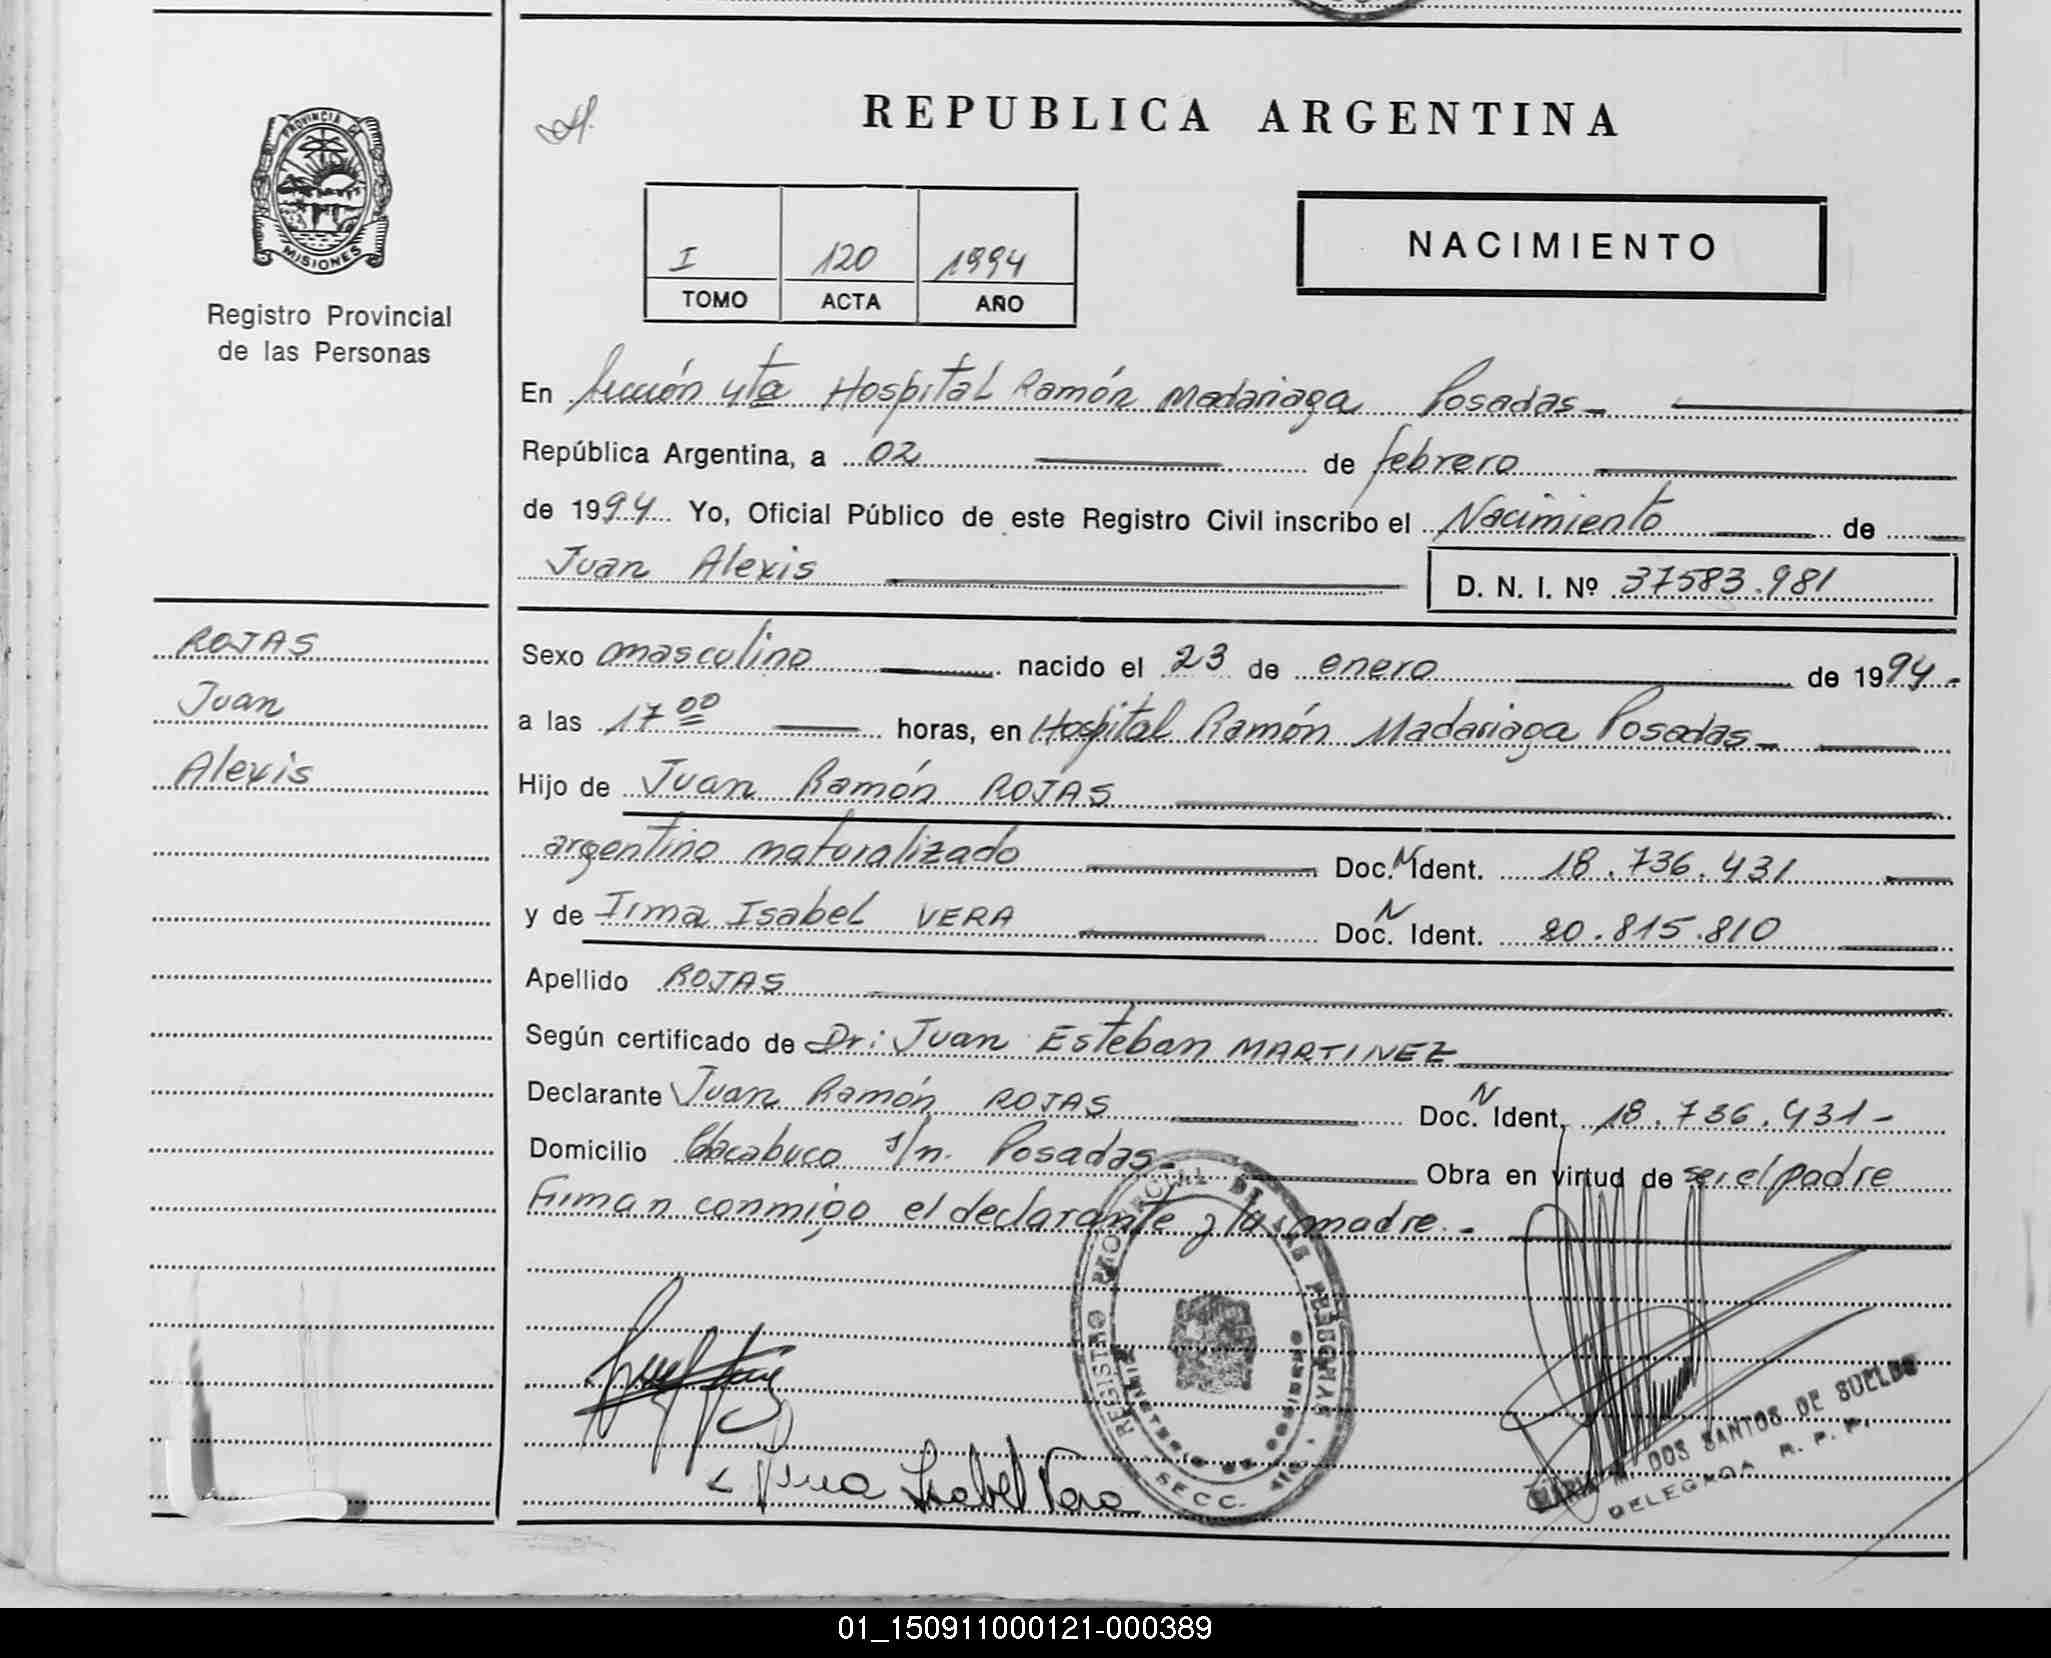 PROVINCIA DE
MISIONES
Registro Provincial
de las Personas
REPUBLICA ARGENTINA
I 120 1994
TOMO ACTA AÑO
NACIMIENTO
En Sección 4ta Hospital Ramón Madariaga Posadas
República Argentina, a 02 de febrero
de 1994 Yo, Oficial Público de este Registro Civil inscribo el Nacimiento de
Juan Alexis D. N. I. Nº 37583.981
ROJAS
Juan
Alexis
Sexo masculino nacido el 23 de enero de 1994.
a las 17 00 horas, en Hospital Ramón Madariaga Posadas
Hijo de Juan Ramón ROJAS
argentino naturalizado Doc. N Ident. 18.736.431
y de Irma Isabel VERA Doc. N Ident. 20.815.810
Apellido ROJAS
Según certificado de Dr: Juan Esteban MARTINEZ
Declarante Juan Ramón ROJAS Doc. N Ident. 18.736.431-
Domicilio Chacabuco s/n. Posadas Obra en virtud de ser el padre
Firman conmigo el declarante y la madre.-
REGISTRO PROVINCIAL DE LAS PERSONAS
MINISTERIO DE GOBIERNO
SECC. 4ta.
Isabel Vera
MARIA M. DOS SANTOS DE SUELDO
DELEGADA R. P. P.
01_150911000121-000389